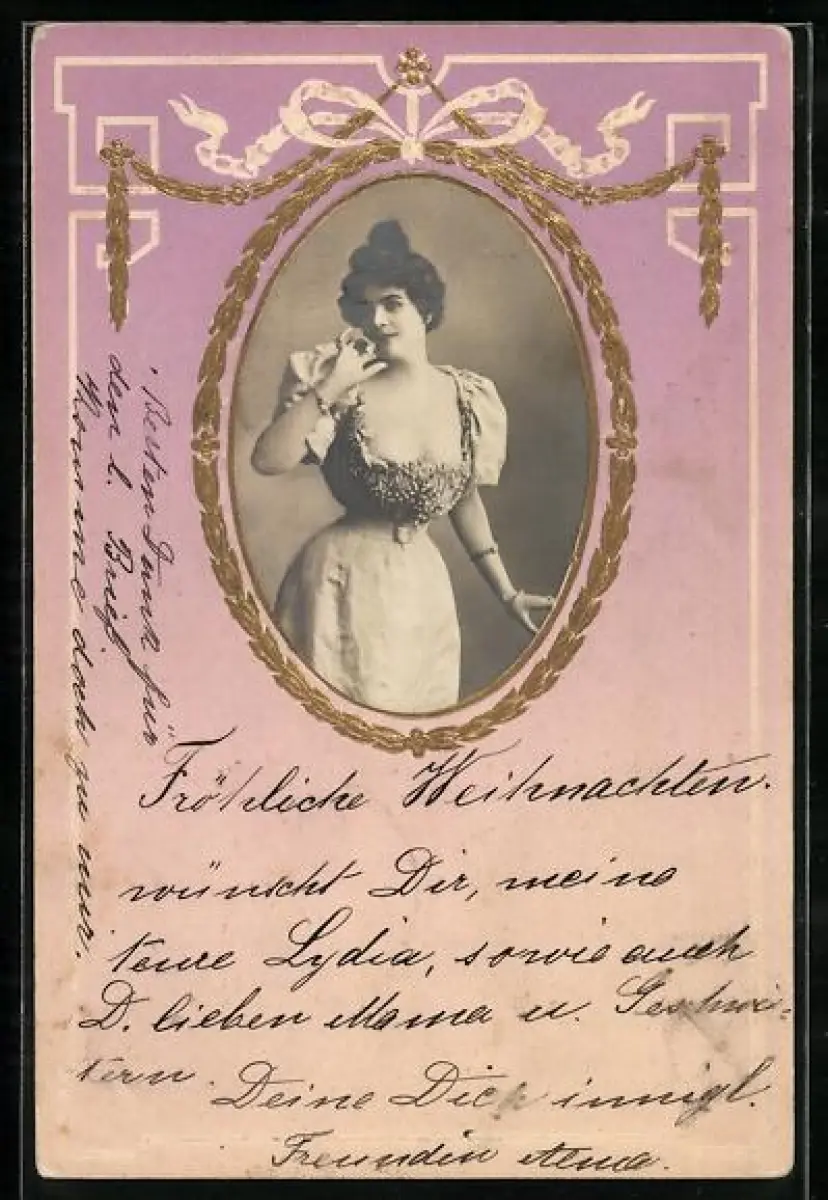 Fröhliche Weihnachten.
wünscht Dir, meine
teure Lydia, sowie auch
D. lieben Mama u. Geschwi-
stern. Deine Dich innigl.
Freundin Alma.
Besten Dank für
den l. Brief
Komme doch zu mir.